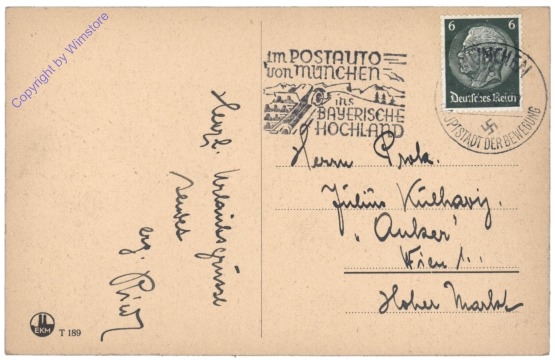 Copyright by Wimstore
im POSTAUTO
von MÜNCHEN
ins
BAYERISCHE
HOCHLAND
6 6
Deutsches Reich
MÜNCHEN
HAUPTSTADT DER BEWEGUNG
Herzl. Urlaubsgrüsse
sendet
erg.
Herrn Prok.
Julius
„Anker"
Wien 1.
Hoher Markt
EKM
T 189